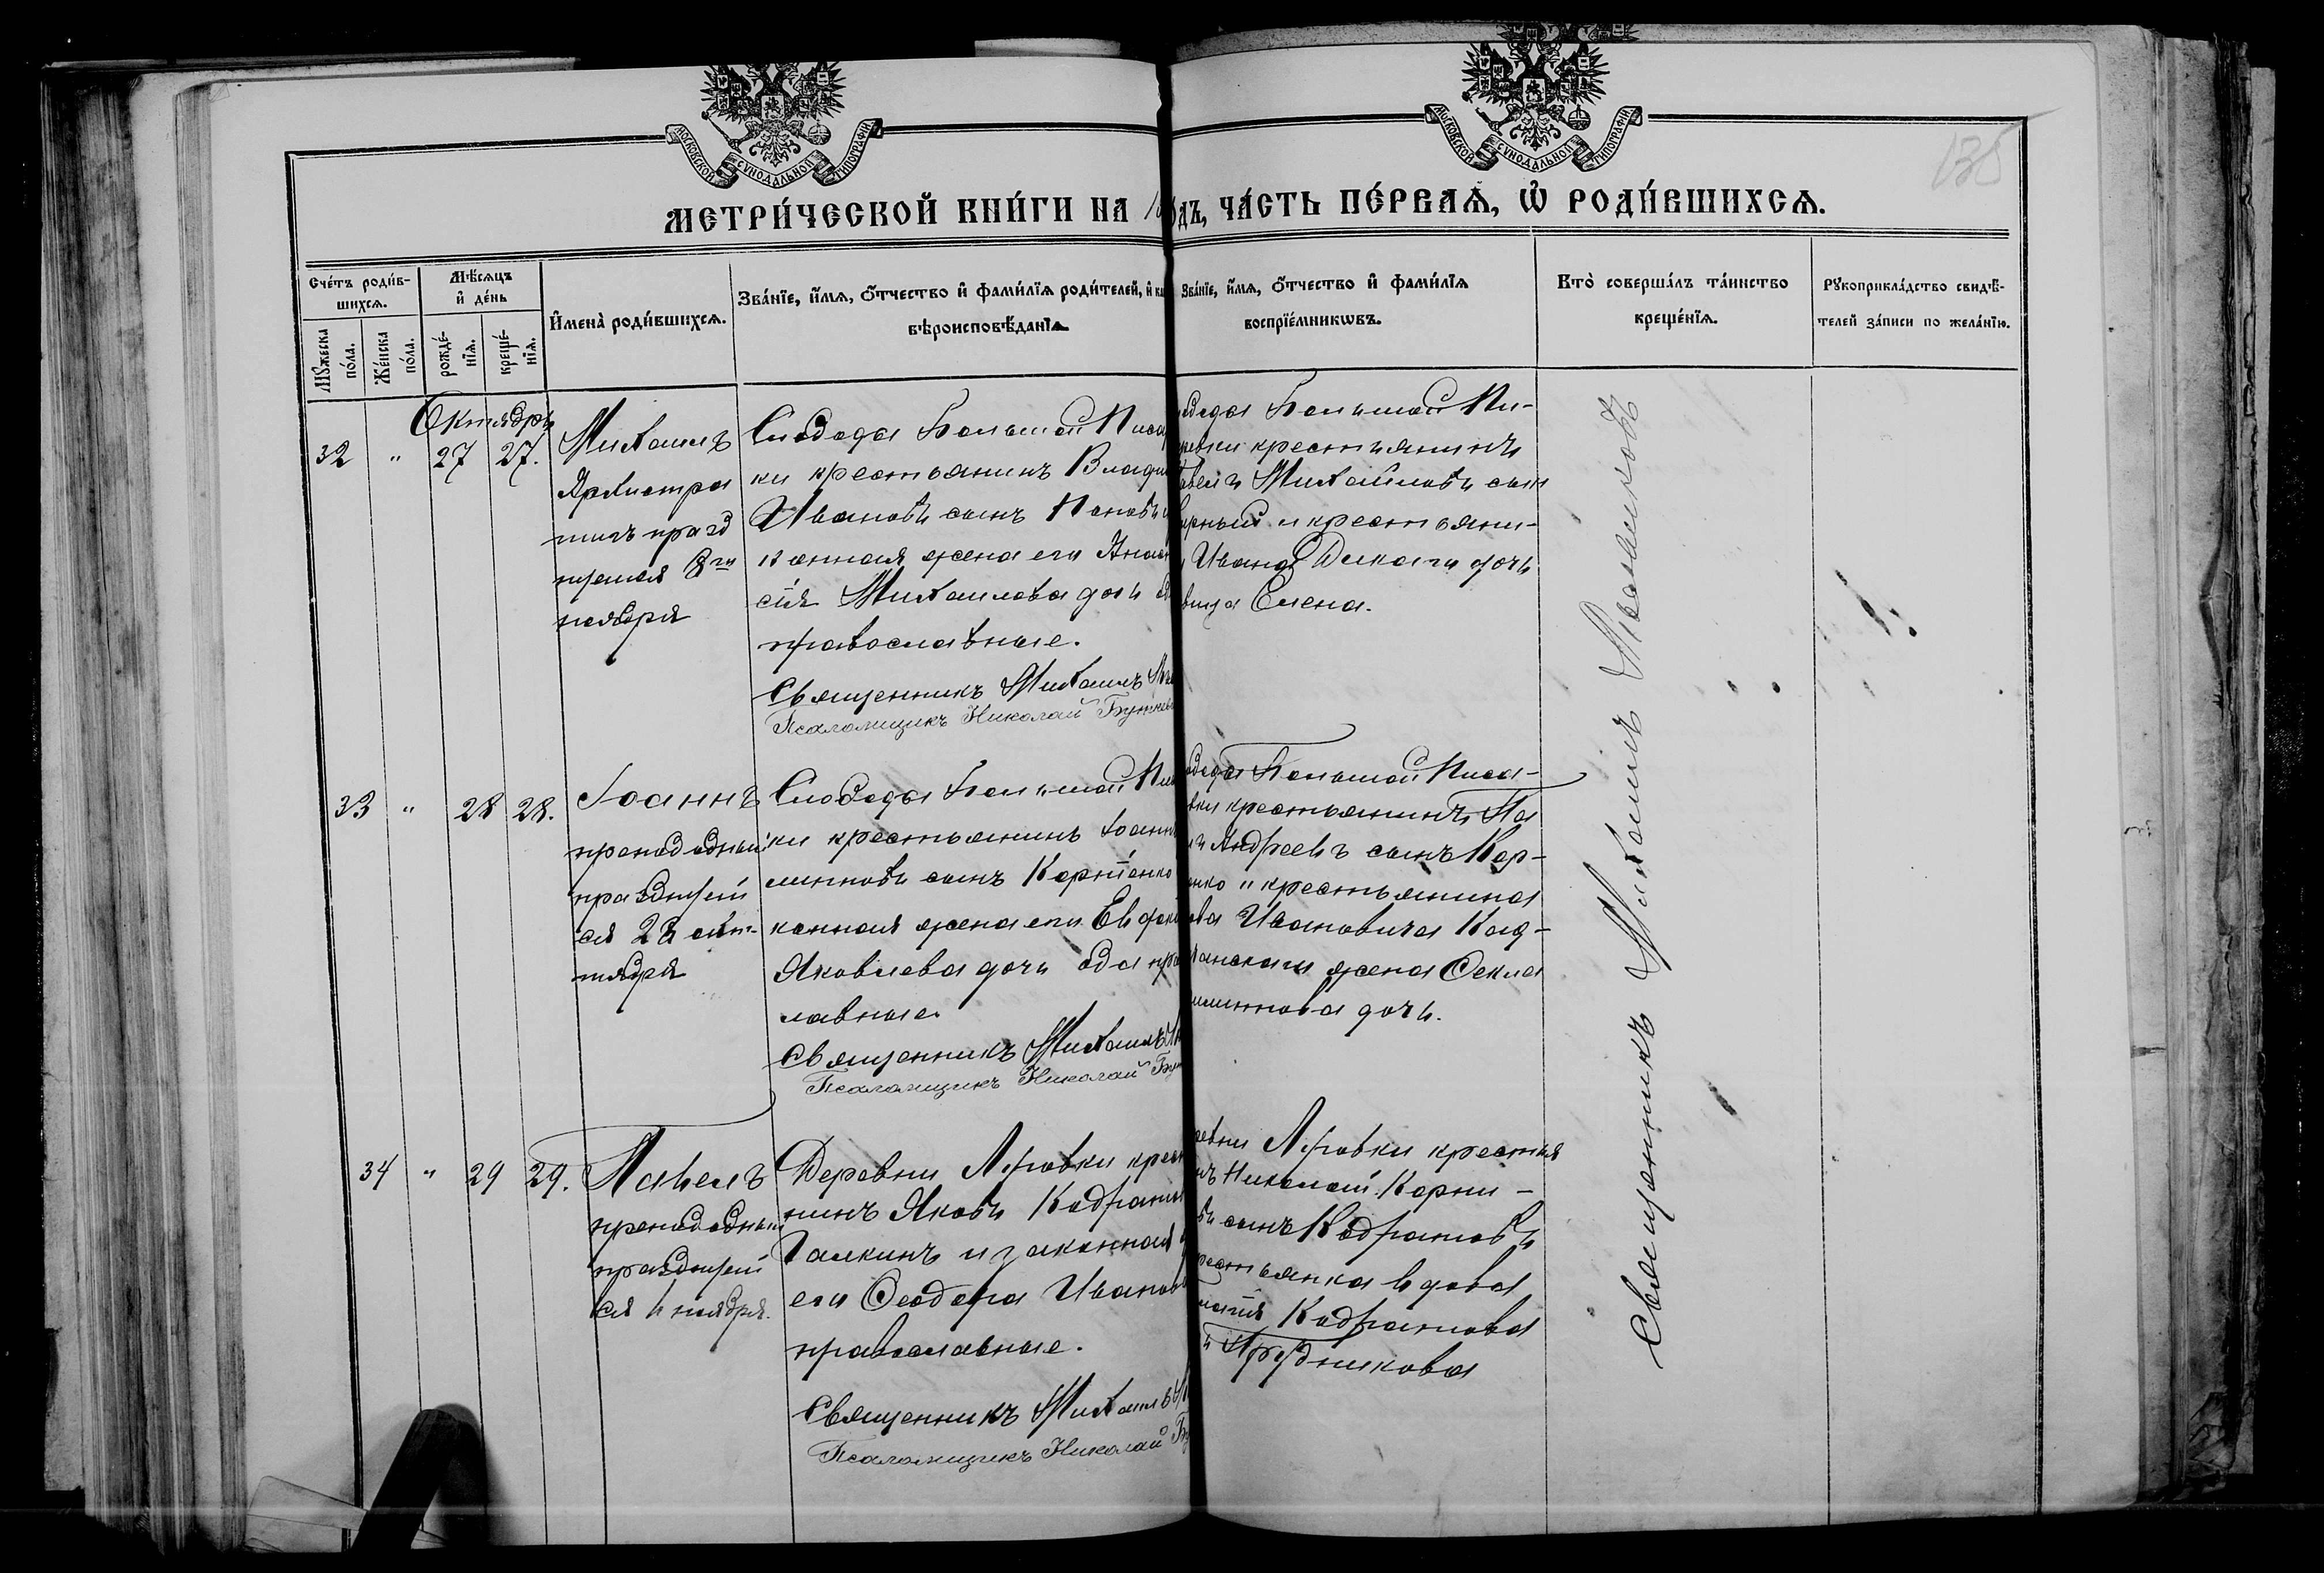 МОСКОВСКОЙ СѴНОДАЛЬНОЙ ТИПОГРАФІИ.
МОСКОВСКОЙ СѴНОДАЛЬНОЙ ТИПОГРАФІИ.
135
МЕТРИ́ЧЕСКОЙ КНИ́ГИ НА
ЧА́СТЬ ПЕ́РВАѦ, Ѡ҆ РОДИ́ВШИХСѦ.
Сче́тъ роди́в-
шихсѧ.
Мꙋ́жеска по́ла.
Же́нска по́ла.
Мѣ́сѧцъ
и҆ де́нь
рожде́-
нїѧ.
креще́-
нїѧ.
И҆мена̀ роди́вшихсѧ.
Зва́нїе, и҆́мѧ, ѻ҆́тчество и҆ фами́лїѧ роди́телей, и҆
вѣроисповѣ́данїѧ.
Зва́нїе, и҆́мѧ, ѻ҆́тчество и҆ фами́лїѧ
воспрїе́мникѡвъ.
Кто̀ соверша́лъ та́инство
креще́нїѧ.
Рꙋкоприкла́дство свидѣ́-
телей за́писи по жела́нїю.
Октябрь
32 " 27 27.
Михаилъ
Архистра
тигъ празд
нуемыя 8го
ноября
Слободы Большой Писар
ки крестьянинъ Влади
Ивановъ сынъ Поповъ и
конная жена его Анаста
сія Михаилова дочь оба
православные.
Священникъ Михаилъ
Псаломщикъ Николай
ободы Большой Пи-
ревки крестьянинъ
Павелъ Михайловъ сынъ
и крестьяни-
Ивана Дикаго дочь
вица Елена.
33 " 28 28.
Іоаннъ
преподобный
празднуей
ся 28 сен-
тября
Слободы Большой Пис
ки крестьянинъ Іоаннъ
сынъ Корніенко
конная жена его Евдокі
Яковлева дочь оба пра
лавные.
Священникъ Михаилъ
Псаломщикъ Николай
ободы Большой Писа-
вки крестьянинъ Па
Андреевъ сынъ Кор-
енко и крестьянина
ова Ивановича Кад-
жена Ѳекла
дочь.
34 " 29 29.
Павелъ
преподобный
празднуей
ся 4 ноября.
Деревни Яровки крест
нинъ Яковъ Кодратов
Галкинъ и законная
его Ѳеодора Иванов
православные.
Священникъ Михаилъ
Псаломщикъ Николай
ревни Яровки крестья
нъ Николай Корни-
въ сынъ Кодратовъ
рестьянка вдова
Кодратова
Прудникова
Священникъ Михаилъ